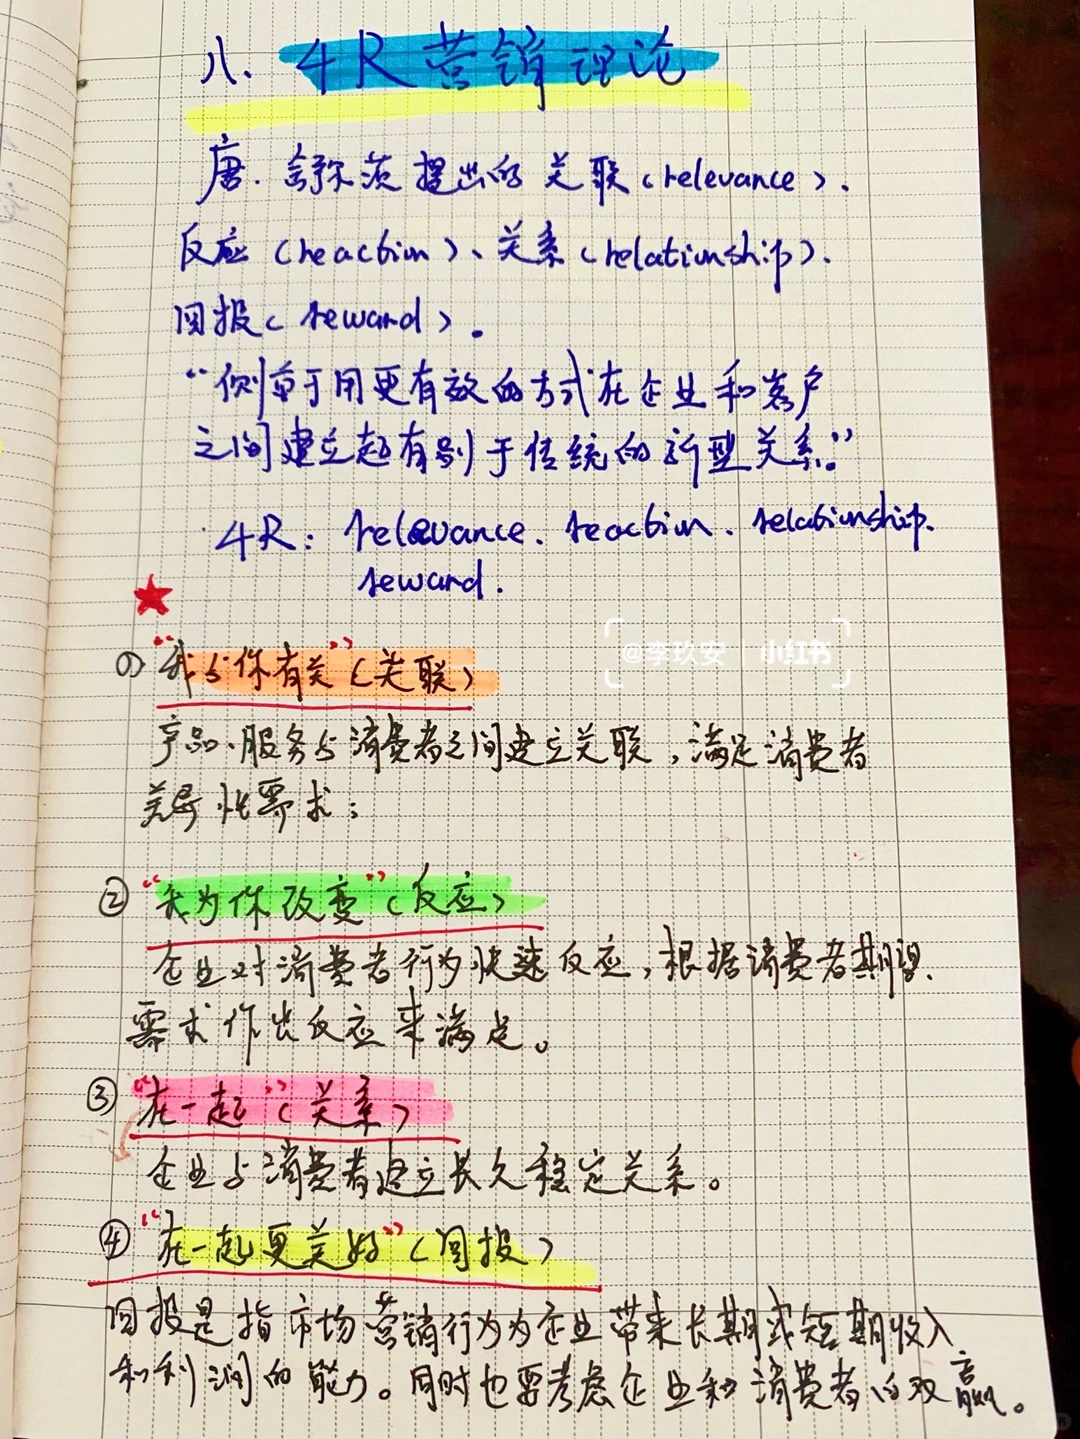 八、4R营销理论
唐·舒尔茨提出的关联(relevance)、
反应(reaction)、关系(relationship)、
回报(reward)。
“侧重于用更有效的方式在企业和客户
之间建立起有别于传统的新型关系。”
4R: relevance. reaction. relationship.
reward.
@李玖安 | 小红书
① “我与你有关”(关联)
产品、服务与消费者之间建立关联,满足消费者
关导性需求;
② “我为你改变”(反应)
企业对消费者行为快速反应,根据消费者期望、
需求作出反应来满足。
③ “在一起”(关系)
企业与消费者建立长久稳定关系。
④ “在一起更美好”(回报)
回报是指市场营销行为为企业带来长期或短期收入
和利润的能力。同时也要考虑企业和消费者的双赢。